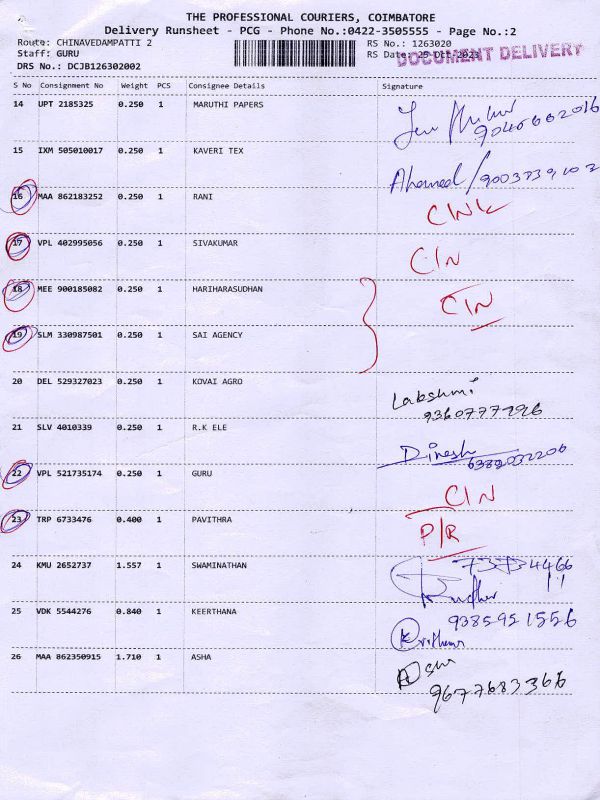 THE PROFESSIONAL COURIERS, COIMBATORE
Delivery Runsheet - PCG - Phone No.:0422-3505555 - Page No.:2
Route: CHINAVEDAMPATTI 2 RS No.: 1263020
Staff: GURU RS Date: 25-Oct-2023
DOCUMENT DELIVERY
DRS No.: DCJB126302002
S No Consignment No Weight PCS Consignee Details Signature
14 UPT 2185325 0.250 1 MARUTHI PAPERS
15 IXM 505010017 0.250 1 KAVERI TEX
Ahamed/
16 MAA 862183252 0.250 1 RANI
17 VPL 402995056 0.250 1 SIVAKUMAR C/N
18 MEE 900185082 0.250 1 HARIHARASUDHAN C/N
19 SLM 330987501 0.250 1 SAI AGENCY
20 DEL 529327023 0.250 1 KOVAI AGRO Labshmi
21 SLV 4010339 0.250 1 R.K ELE Dinesh
22 VPL 521735174 0.250 1 GURU C/N
23 TRP 6733476 0.400 1 PAVITHRA P/R
24 KMU 2652737 1.557 1 SWAMINATHAN
9385951556
25 VDK 5544276 0.840 1 KEERTHANA
26 MAA 862350915 1.710 1 ASHA
9677683366